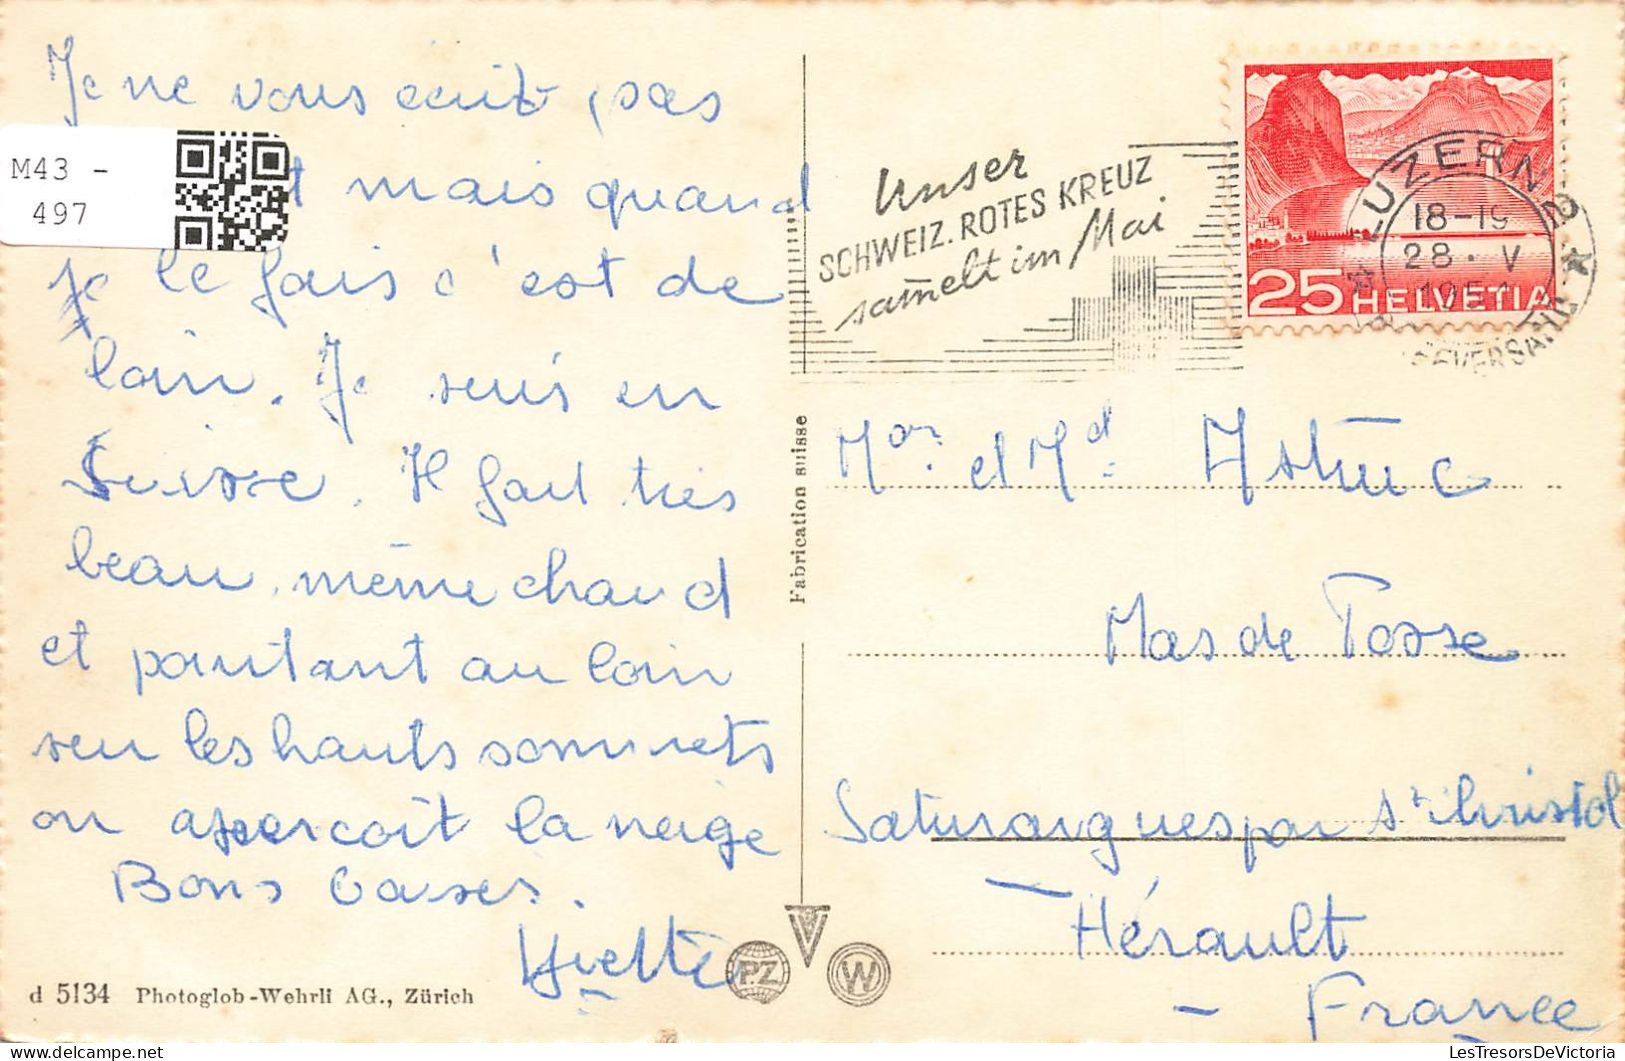 Je ne vous ecrit pas
t mais quand
je le fais c'est de
loin. Je suis en
Suisse. Il fait très
beau, même chaud
et pourtant au loin
sur les hauts sommets
on aperçoit la neige
Bons baisers.
Yvette
d 5134 Photoglob-Wehrli AG., Zürich
M43 -
497
Fabrication suisse
P.Z
W
Unser
SCHWEIZ. ROTES KREUZ
sam̄elt im Mai
LUZERN 2
18-19
28. V
25 HELVETIA
Mor. et Md. Astruc
Mas de Tosse
Saturargues par St Christol
Hérault
- France
LesTresorsDeVictoria